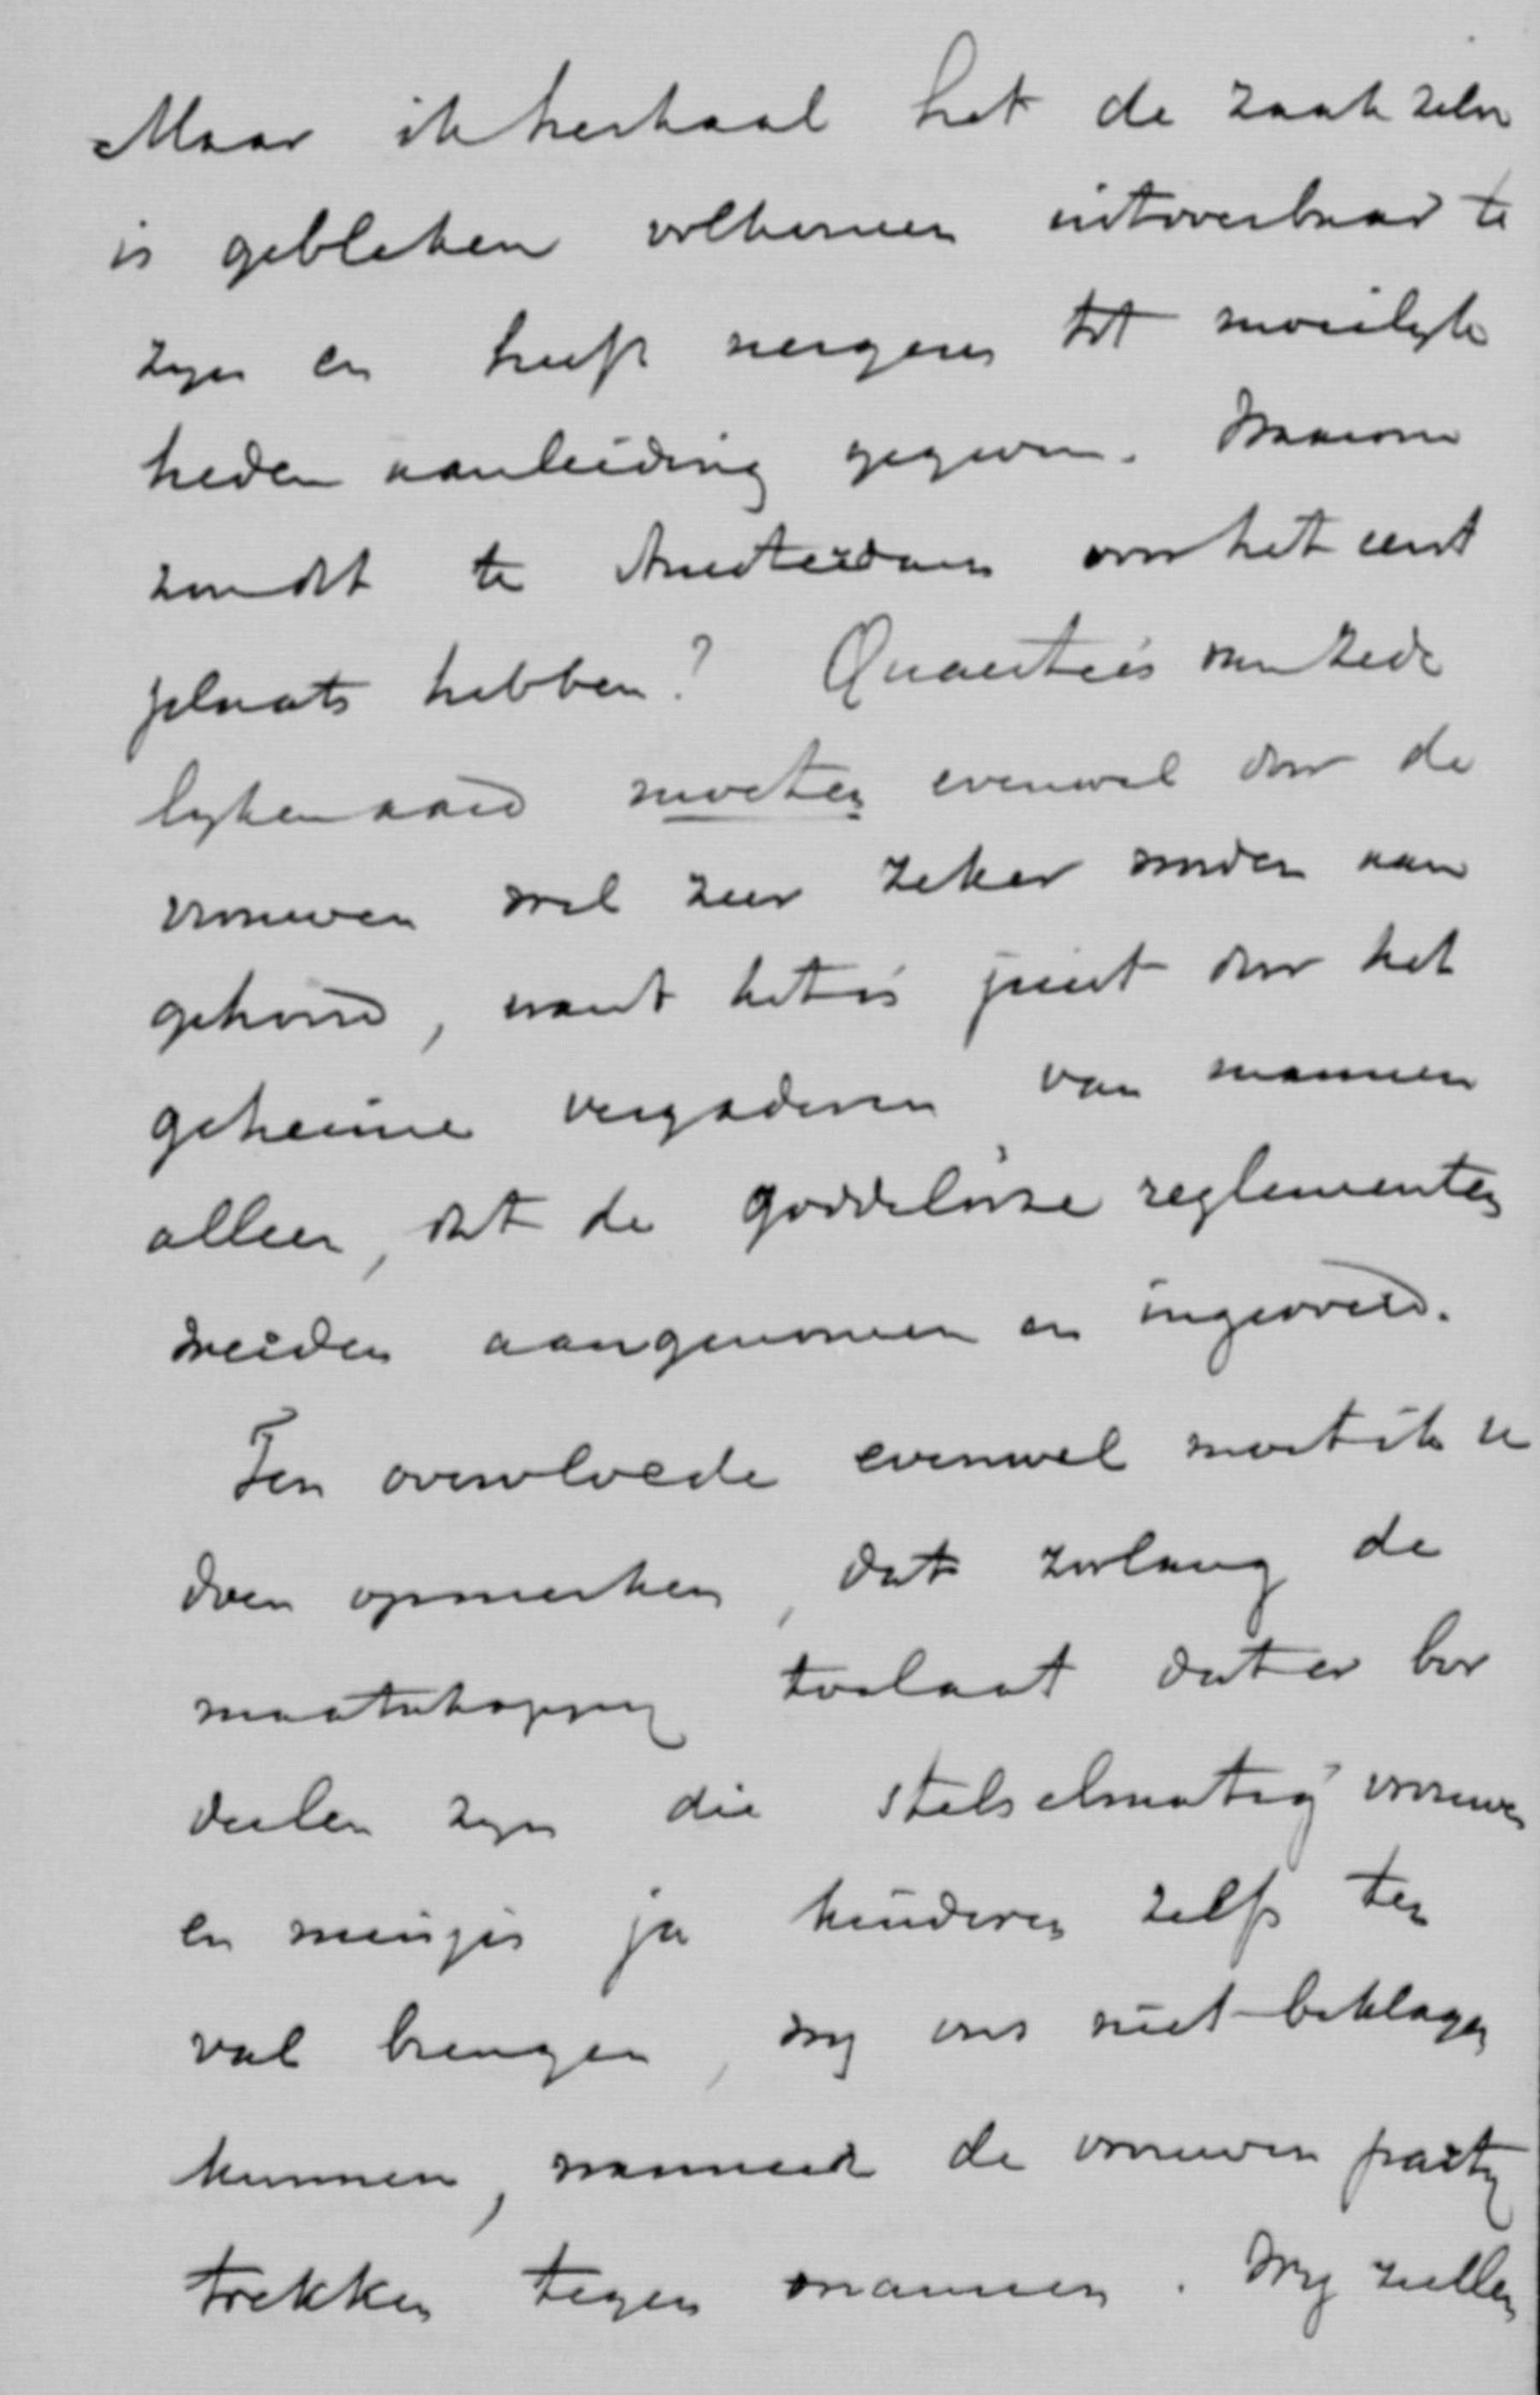 Maar ik herhaal het de zaak zelve
is gebleken volkomen uitvoerbaar te
zyn en heeft nergens tot moeilyk
heden aanleiding gegeven. Waarom
zou dit te Amsterdam voor het eerst
plaats hebben? Quaesties van zede
lyken aard moeten evenwel door de
vrouwen wel zeer zeker worden aan
gehoord, want het is juist door het
geheime vergaderen van mannen
alleen, dat de goddelooze reglementen
werden aangenomen en ingevoerd.
Ten overvloede evenwel moet ik u
doen opmerken, dat zoolang de
maatschappy toelaat dat er bor
deelen zyn die stelselmatig vrouwen
en meisjes ja kinderen zelfs ten
val brengen, wy ons niet beklagen
kunnen, wanneer de vrouwen party
trekken tegen mannen. Wy zullen